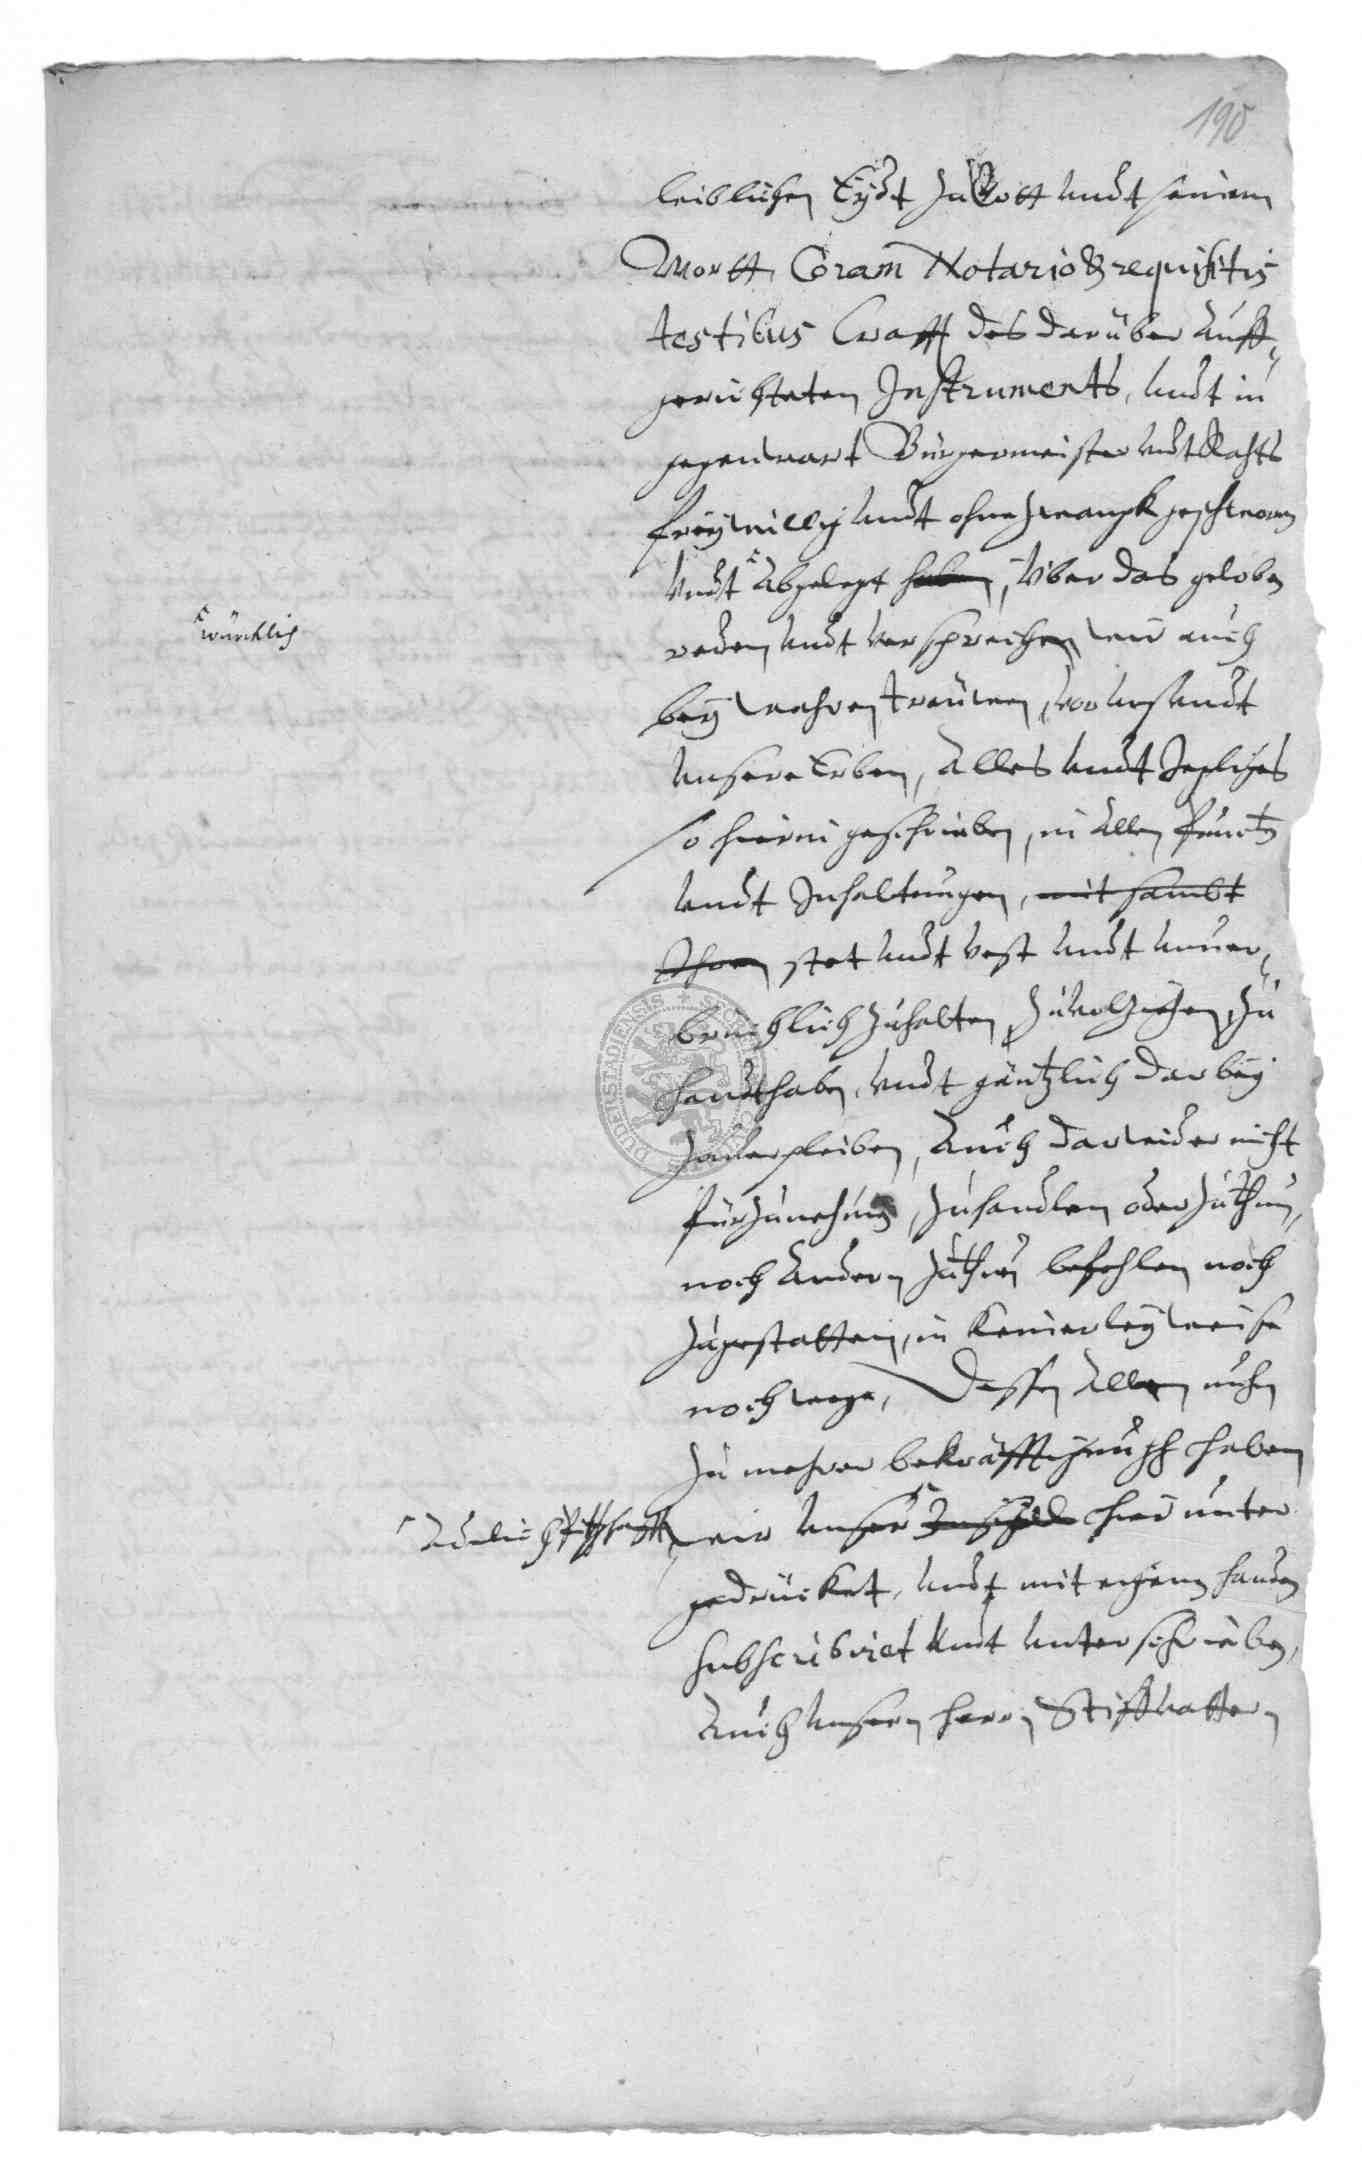 190
leiblichen Eydt zu Gott undt seinem
Wortt, Coram Notario & requisitis
testibus Crafft des darüber Auff¬
gerichteten Instruments, undt in
gegenwart Bürgermeister undt Rahts
freywillig undt ohne zwangk geschworn
undt Abgelegt haben, Über das geloben
würcklich
reden undt versprechen wir auch
bey wahren trauwen, vor uns undt
unsere Erben, Alles undt Jegliches
so hierin geschrieben, in Allen puncten
undt Inhaltungen, mit sambt
Ihren stet undt vest undt unver¬
brüchlich zuhalten, zuvolziehen, zu
handthaben, undt gäntzlich darbey
zuverpleiben, Auch darwider nicht
fürzunehmen, zuhandlen oder zuthun,
noch Andern zuthun befehlen noch
zugestatten, in keinerley weise
noch wege, Dessen Allen nuhn
zu mehrer bekräfftigungh haben
Adelich Pittschafft
wir unser Insigell hier unter
gedrücket, undt mit eigenen handen
subscribiret undt unterschrieben,
Auch unsern herrn Stiffvattern